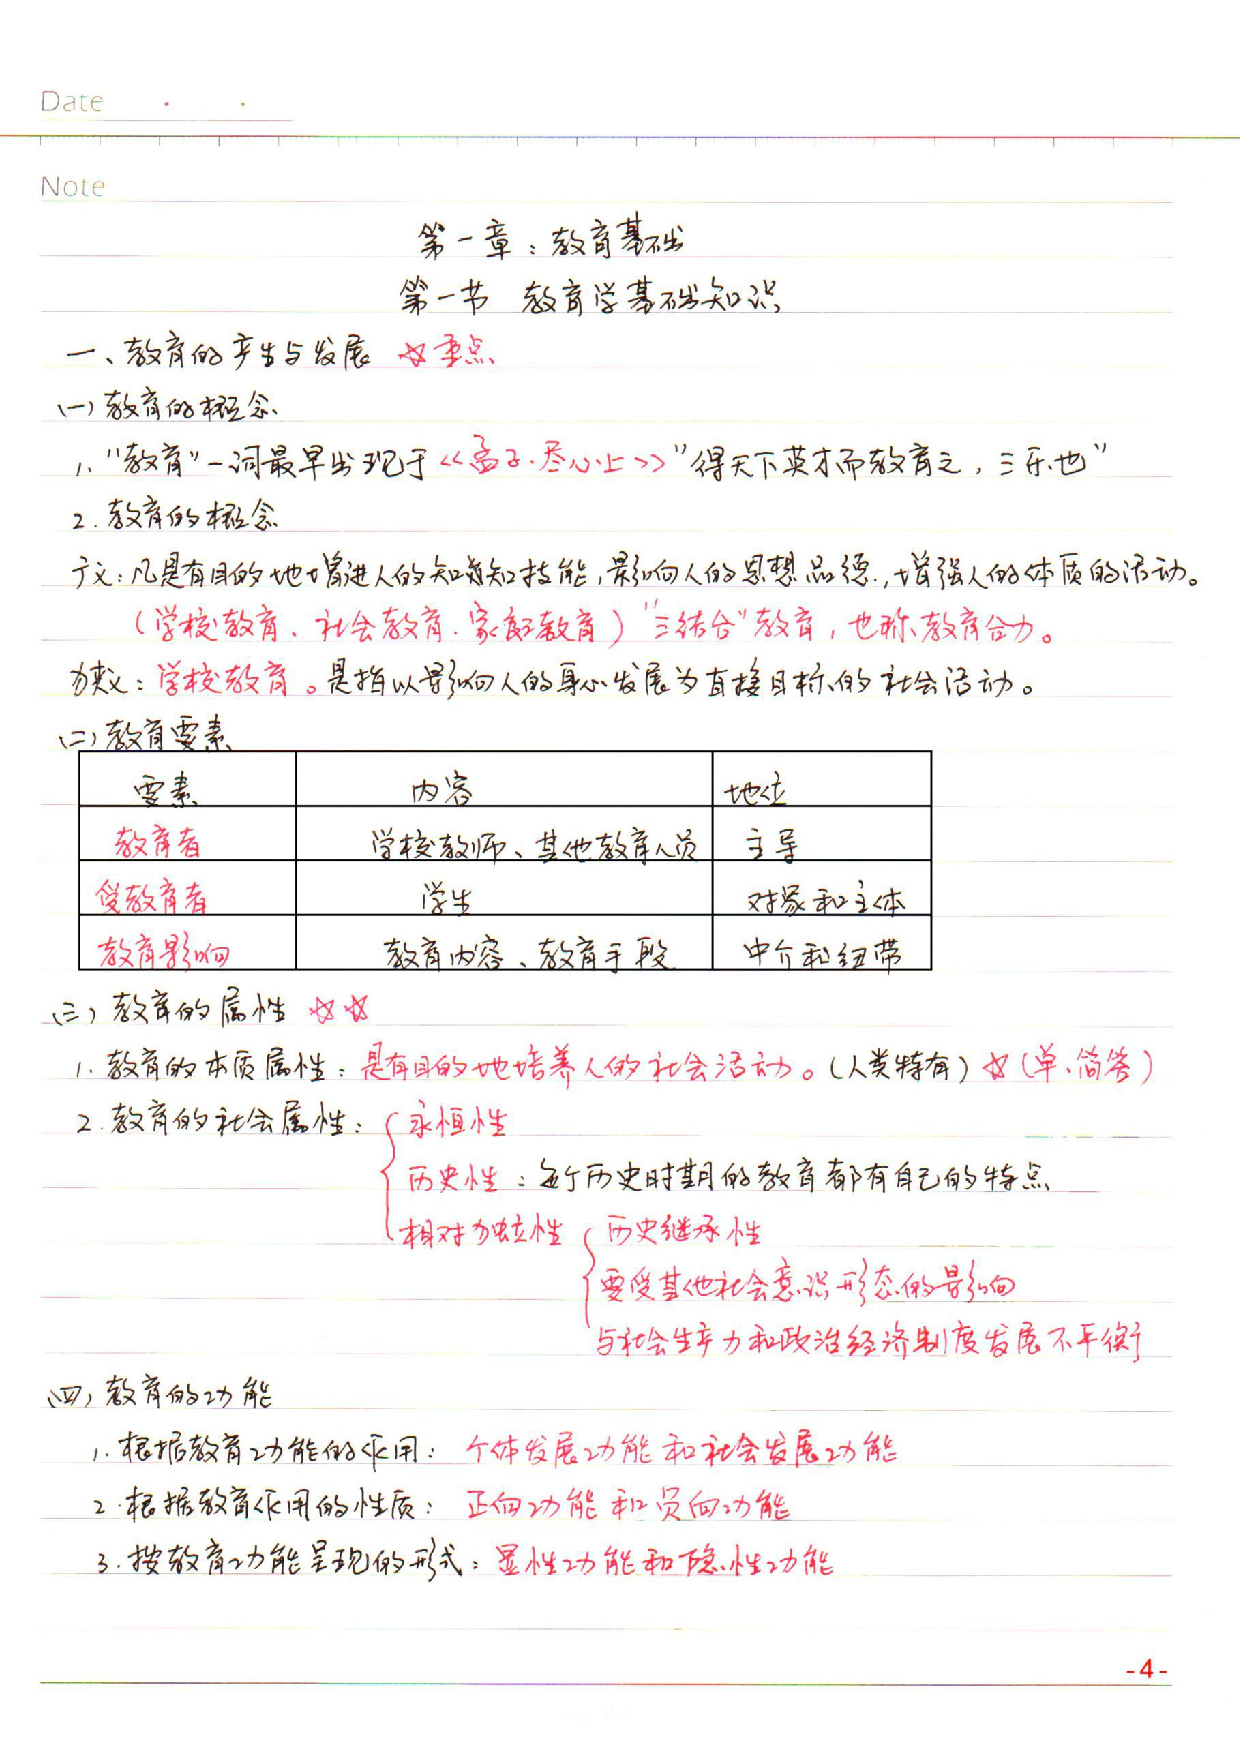 Date
Note
第一章：教育基础
第一节 教育学基础知识
一、教育的产生与发展 ☆重点
(一)教育的概念
1."教育"一词最早出现于《孟子·尽心上》"得天下英才而教育之，三乐也"
2.教育的概念
广义：凡是有目的地增进人的知识和技能，影响人的思想品德，增强人的体质的活动。
（学校教育、社会教育、家庭教育）"三结合"教育，也称教育合力。
狭义：学校教育。是指以影响人的身心发展为直接目标的社会活动。
(二)教育要素
要素 内容 地位
教育者 学校教师、其他教育人员 主导
受教育者 学生 对象和主体
教育影响 教育内容、教育手段 中介和纽带
(三)教育的属性 ☆☆
1.教育的本质属性：是有目的地培养人的社会活动。（人类特有）☆（单、简答）
2.教育的社会属性：永恒性
历史性：每个历史时期的教育都有自己的特点
相对独立性 历史继承性
要受其他社会意识形态的影响
与社会生产力和政治经济制度发展不平衡
(四)教育的功能
1.根据教育功能的作用：个体发展功能和社会发展功能
2.根据教育作用的性质：正向功能和负向功能
3.按教育功能呈现的形式：显性功能和隐性功能
-4-